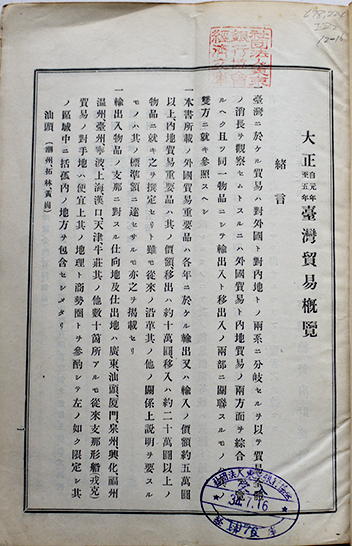 大正自元年至五年臺灣貿易概覽
緒言
臺灣ニ於ケル貿易ハ對外國ト對內地トノ兩系ニ分岐セルヲ以テ貿易
ノ消長ヲ觀察セムトスルニハ外國貿易ト內地貿易ノ兩方面ヲ綜合
ルヘク且ツ同一物品ニシテ輸出入ト移出入ノ兩部ニ關聯スルモノ
雙方ニ就キ參照スヘシ
一本書所載ノ外國貿易重要品ハ各年ニ於ケル輸出又ハ輸入ノ價額約五萬圓
以上、內地貿易重要品ハ其ノ價額移出ハ約十萬圓、移入ハ約二十萬圓以上ノ
物品ニ就キ之ヲ撰定セリト雖モ從來ノ沿革其ノ他ノ關係上說明ヲ要スル
モノハ其ノ標準額ニ達セサルモ亦之ヲ揭載セリ
一輸出入物品ノ支那ニ對スル仕向地及仕出地ハ廣東、汕頭、厦門、泉州、興化、福州
溫州、臺州、寧波、上海、漢口、天津、牛莊其ノ他數十箇所アルモ從來支那形船戎克
貿易ノ對手地ハ便宜上其ノ地理ト商勢圈トヲ參酌シテ左ノ如ク限定シ其
ノ區域中ニ括弧內ノ地方ヲ包含セシメタリ
汕頭（潮州、拓林、黃岡）
7.16